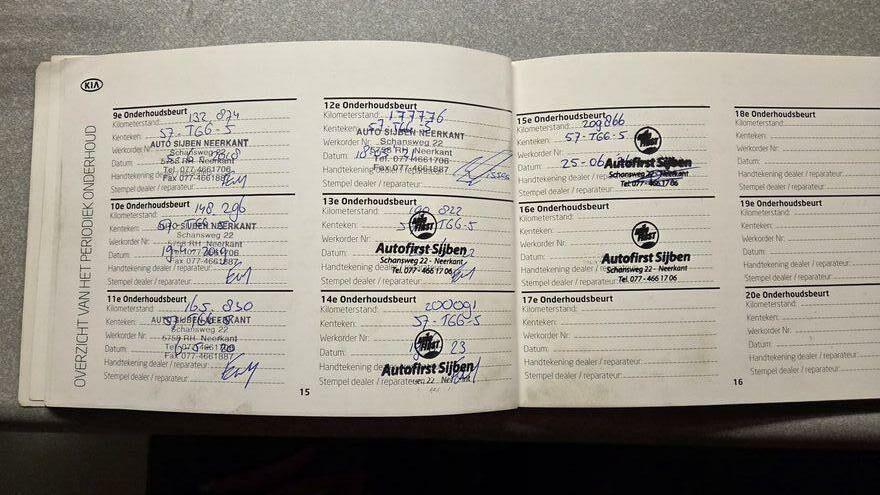 KIA
OVERZICHT VAN HET PERIODIEK ONDERHOUD
9e Onderhoudsbeurt
Kilometerstand: 132.874
Kenteken: 57-TGG-5
Werkorder Nr:
AUTO SIJBEN NEERKANT
Schansweg 22
5758 RH Neerkant
Tel. 077-4661706
Fax 077-4661887
Datum:
Handtekening dealer / reparateur:
Stempel dealer / reparateur:
10e Onderhoudsbeurt
Kilometerstand: 148.296
Kenteken: 57-TGG-5
AUTO SIJBEN NEERKANT
Schansweg 22
5758 RH Neerkant
Tel. 077-4661706
Fax 077-4661887
Werkorder Nr:
Datum:
Handtekening dealer / reparateur:
Stempel dealer / reparateur:
11e Onderhoudsbeurt
Kilometerstand: 165.830
Kenteken:
AUTO SIJBEN NEERKANT
Schansweg 22
5758 RH Neerkant
Tel. 077-4661706
Fax 077-4661887
Werkorder Nr:
Datum:
Handtekening dealer / reparateur:
Stempel dealer / reparateur:
12e Onderhoudsbeurt
Kilometerstand: 177776
Kenteken: 57-TGG-5
AUTO SIJBEN NEERKANT
Schansweg 22
5758 RH Neerkant
Tel. 077-4661706
Fax 077-4661887
Werkorder Nr:
Datum:
Handtekening dealer / reparateur:
Stempel dealer / reparateur:
13e Onderhoudsbeurt
Kilometerstand:
Kenteken: TGG-5
Werkorder Nr:
AUTO FIRST
Autofirst Sijben
Schansweg 22 - Neerkant
Tel. 077 - 466 17 06
Datum:
Handtekening dealer / reparateur:
Stempel dealer / reparateur:
14e Onderhoudsbeurt
Kilometerstand: 200091
Kenteken: 57-TGG-5
Werkorder Nr:
AUTO FIRST
Datum: 23
Handtekening dealer / reparateur:
Autofirst Sijben
weg 22 - Neerkant
Stempel dealer / reparateur:
15
15e Onderhoudsbeurt
Kilometerstand: 209866
Kenteken: 57-TGG-5
Werkorder Nr:
AUTO FIRST
Datum: 25-06
Autofirst Sijben
Schansweg 22 - Neerkant
Tel. 077 - 466 17 06
Handtekening dealer / reparateur:
Stempel dealer / reparateur:
16e Onderhoudsbeurt
Kilometerstand:
Kenteken:
Werkorder Nr:
AUTO FIRST
Autofirst Sijben
Schansweg 22 - Neerkant
Tel. 077 - 466 17 06
Datum:
Handtekening dealer / reparateur:
Stempel dealer / reparateur:
17e Onderhoudsbeurt
Kilometerstand:
Kenteken:
Werkorder Nr:
Datum:
Handtekening dealer / reparateur:
Stempel dealer / reparateur:
18e Onderhoudsbeurt
Kilometerstand:
Kenteken:
Werkorder Nr:
Datum:
Handtekening dealer / r
Stempel dealer / repara
19e Onderhoudsbeurt
Kilometerstand:
Kenteken:
Werkorder Nr:
Datum:
Handtekening dealer / r
Stempel dealer / reparat
20e Onderhoudsbeurt
Kilometerstand:
Kenteken:
Werkorder Nr:
Datum:
Handtekening dealer / re
Stempel dealer / reparate
16